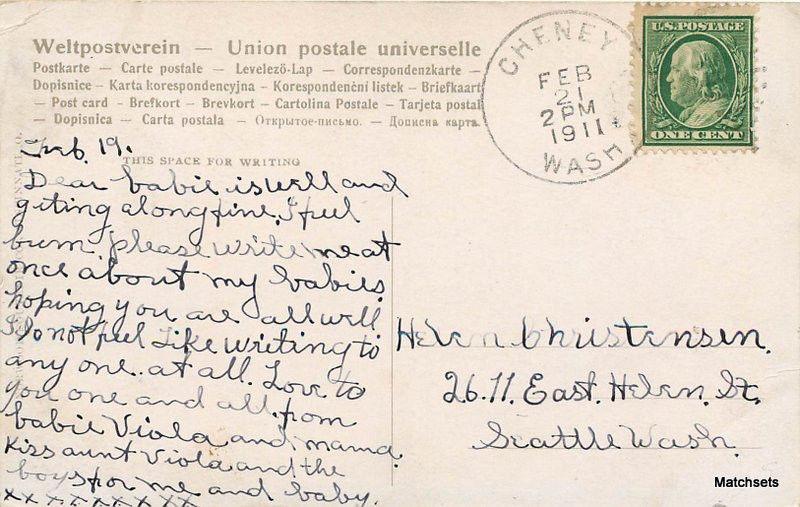 Weltpostverein — Union postale universelle
Postkarte — Carte postale — Levelező-Lap — Correspondenzkarte —
Dopisnice — Karta korespondencyjna — Korespondenční listek — Briefkaart
— Post card — Brefkort — Brevkort — Cartolina Postale — Tarjeta postal
— Dopisnica — Carta postala — Открытое-письмо. — Дописна карта.
CHENEY
FEB
21
2 PM
1911
WASH
U.S. POSTAGE
ONE CENT
Feb. 19.
THIS SPACE FOR WRITING
Dear babie is well and
geting along fine. I feel
bum. please write me at
once about my babies
hoping you are all well
I do not feel like writing to
any one. at all. Love to
you one and all. from
babie Viola and mama.
Kiss aunt Viola and the
boys for me and baby.
xx x x x x x x x
Helen Christensen.
26.11. East. Helen. St.
Seattle Wash.
Matchsets